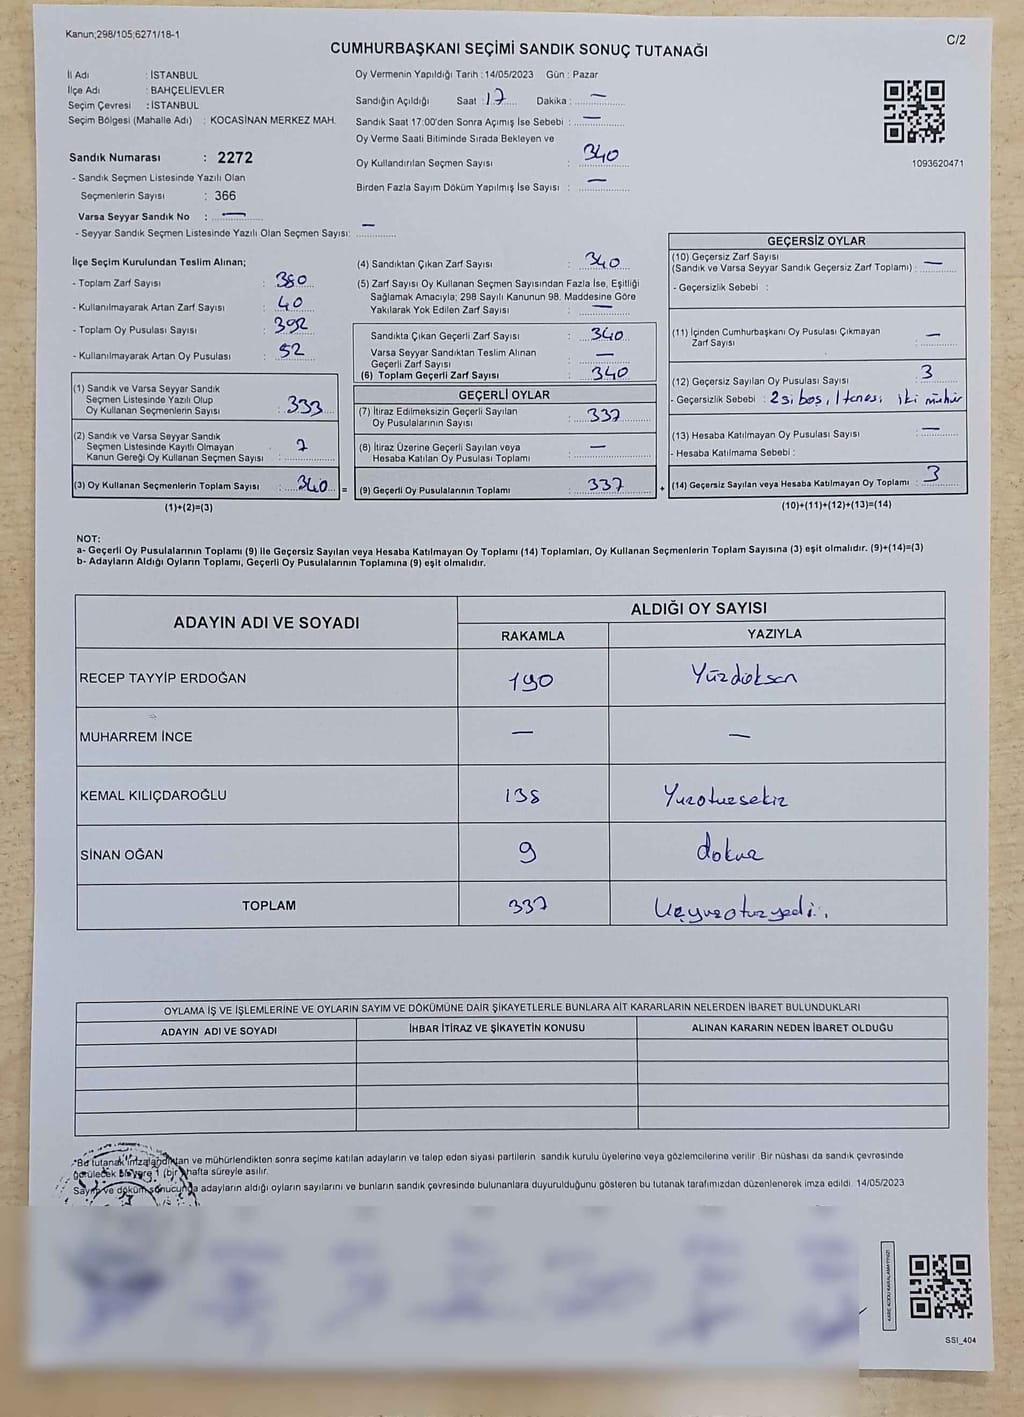 Kanun;298/105;6271/18-1
C/2
CUMHURBAŞKANI SEÇİMİ SANDIK SONUÇ TUTANAĞI
İl Adı : İSTANBUL
İlçe Adı : BAHÇELİEVLER
Seçim Çevresi : İSTANBUL
Seçim Bölgesi (Mahalle Adı) : KOCASİNAN MERKEZ MAH.
Sandık Numarası : 2272
- Sandık Seçmen Listesinde Yazılı Olan
Seçmenlerin Sayısı : 366
Varsa Seyyar Sandık No : —
- Seyyar Sandık Seçmen Listesinde Yazılı Olan Seçmen Sayısı: —
Oy Vermenin Yapıldığı Tarih : 14/05/2023 Gün : Pazar
Sandığın Açıldığı Saat : 17 Dakika : —
Sandık Saat 17:00'den Sonra Açımış İse Sebebi : —
Oy Verme Saati Bitiminde Sırada Bekleyen ve
Oy Kullandırılan Seçmen Sayısı : 340
Birden Fazla Sayım Döküm Yapılmış İse Sayısı : —
1093620471
İlçe Seçim Kurulundan Teslim Alınan;
- Toplam Zarf Sayısı : 380
- Kullanılmayarak Artan Zarf Sayısı : 40
- Toplam Oy Pusulası Sayısı : 392
- Kullanılmayarak Artan Oy Pusulası : 52
(1) Sandık ve Varsa Seyyar Sandık
Seçmen Listesinde Yazılı Olup
Oy Kullanan Seçmenlerin Sayısı : 333
(2) Sandık ve Varsa Seyyar Sandık
Seçmen Listesinde Kayıtlı Olmayan
Kanun Gereği Oy Kullanan Seçmen Sayısı : 7
(3) Oy Kullanan Seçmenlerin Toplam Sayısı : 340 =
(1)+(2)=(3)
(4) Sandıktan Çıkan Zarf Sayısı : 340
(5) Zarf Sayısı Oy Kullanan Seçmen Sayısından Fazla İse, Eşitliği
Sağlamak Amacıyla; 298 Sayılı Kanunun 98. Maddesine Göre
Yakılarak Yok Edilen Zarf Sayısı : —
Sandıkta Çıkan Geçerli Zarf Sayısı : 340
Varsa Seyyar Sandıktan Teslim Alınan
Geçerli Zarf Sayısı : —
(6) Toplam Geçerli Zarf Sayısı : 340
GEÇERLİ OYLAR
(7) İtiraz Edilmeksizin Geçerli Sayılan
Oy Pusulalarının Sayısı : 337
(8) İtiraz Üzerine Geçerli Sayılan veya
Hesaba Katılan Oy Pusulası Toplamı : —
(9) Geçerli Oy Pusulalarının Toplamı : 337 +
GEÇERSİZ OYLAR
(10) Geçersiz Zarf Sayısı
(Sandık ve Varsa Seyyar Sandık Geçersiz Zarf Toplamı) : —
- Geçersizlik Sebebi :
(11) İçinden Cumhurbaşkanı Oy Pusulası Çıkmayan
Zarf Sayısı : —
(12) Geçersiz Sayılan Oy Pusulası Sayısı : 3
- Geçersizlik Sebebi : 2si boş, 1 tanesi iki mühür
(13) Hesaba Katılmayan Oy Pusulası Sayısı : —
- Hesaba Katılmama Sebebi :
(14) Geçersiz Sayılan veya Hesaba Katılmayan Oy Toplamı : 3
(10)+(11)+(12)+(13)=(14)
NOT:
a- Geçerli Oy Pusulalarının Toplamı (9) ile Geçersiz Sayılan veya Hesaba Katılmayan Oy Toplamı (14) Toplamları, Oy Kullanan Seçmenlerin Toplam Sayısına (3) eşit olmalıdır. (9)+(14)=(3)
b- Adayların Aldığı Oyların Toplamı, Geçerli Oy Pusulalarının Toplamına (9) eşit olmalıdır.
ADAYIN ADI VE SOYADI
ALDIĞI OY SAYISI
RAKAMLA YAZIYLA
RECEP TAYYİP ERDOĞAN 190 Yüzdoksan
MUHARREM İNCE — —
KEMAL KILIÇDAROĞLU 138 Yuzotuzsekiz
SİNAN OĞAN 9 dokuz
TOPLAM 337 Uçyuzotuzyedi.
OYLAMA İŞ VE İŞLEMLERİNE VE OYLARIN SAYIM VE DÖKÜMÜNE DAİR ŞİKAYETLERLE BUNLARA AİT KARARLARIN NELERDEN İBARET BULUNDUKLARI
ADAYIN ADI VE SOYADI İHBAR İTİRAZ VE ŞİKAYETİN KONUSU ALINAN KARARIN NEDEN İBARET OLDUĞU
*Bu tutanak imzalandıktan ve mühürlendikten sonra seçime katılan adayların ve talep eden siyasi partilerin sandık kurulu üyelerine veya gözlemcilerine verilir. Bir nüshası da sandık çevresinde
görülecek bir yere 1 (bir) hafta süreyle asılır.
Sayım ve döküm sonucunda adayların aldığı oyların sayılarını ve bunların sandık çevresinde bulunanlara duyurulduğunu gösteren bu tutanak tarafımızdan düzenlenerek imza edildi. 14/05/2023
KARE KODU KARALAMAYINIZ!
SSI_404